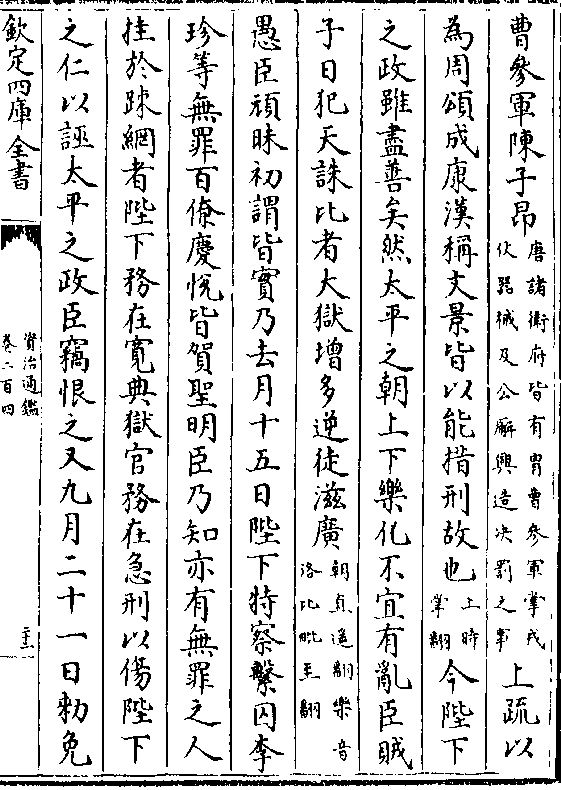 曹參軍陳子昂唐諸衛府皆有胄曹參軍掌戎
仗器械及公廨興造决罰之事上疏以
為周頌成康漢稱文景皆以能措刑故也上時
掌翻今陛下
之政雖盡善矣然太平之朝上下樂化不宜有亂臣賊
子日犯天誅比者大獄增多逆徒滋廣朝直遥翻樂音
洛比毗至翻
愚臣頑昧初謂皆實乃去月十五日陛下特察繫囚李
珍等無罪百僚慶悅皆賀聖明臣乃知亦有無罪之人
挂於疎網者陛下務在寛典獄官務在急刑以傷陛下
之仁以誣太平之政臣竊恨之又九月二十一日勑免
欽定四庫全書
資治通鑑
卷二百四